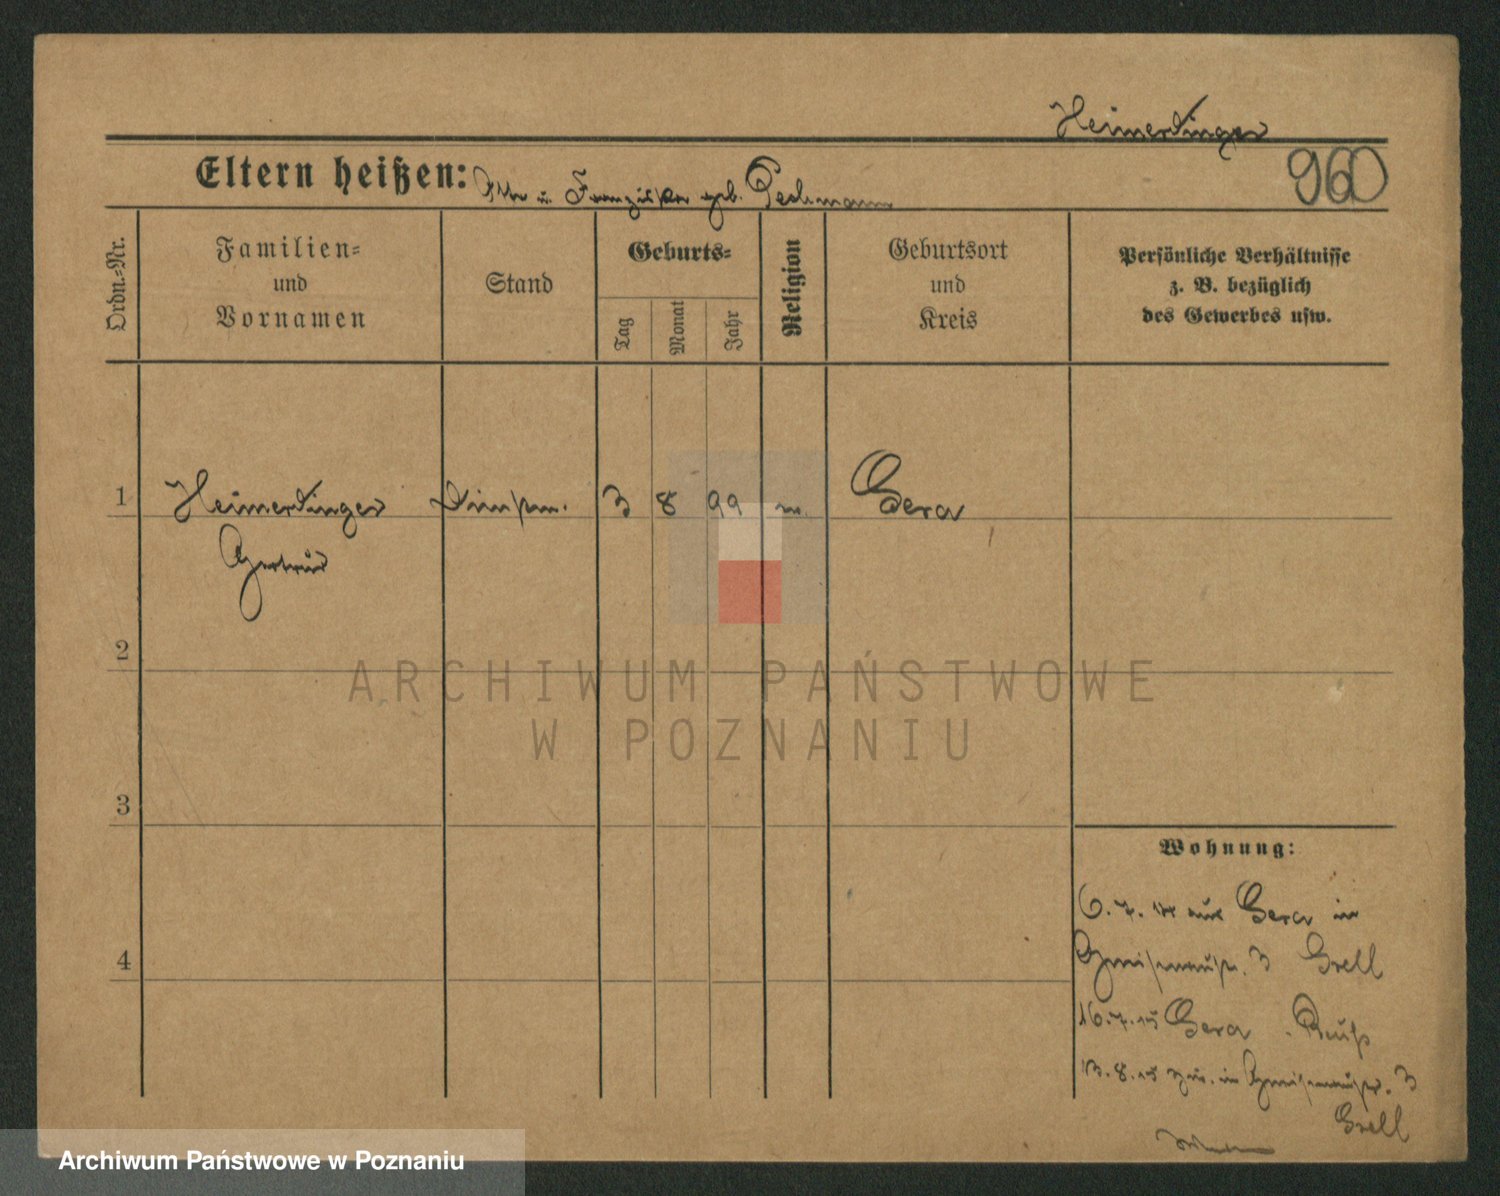 Heimerdinger
960
Eltern heißen: Otto u. Franziska geb. Pechmann
Ordn.-Nr.
Familien-
und
Vornamen
Stand
Geburts-
Tag
Monat
Jahr
Religion
Geburtsort
und
Kreis
Persönliche Verhältnisse
z. B. bezüglich
des Gewerbes usw.
1 Heimerdinger 3 8 99 m. Gera
Gertrud
2
3
4
Wohnung:
6.7.14 aus Gera in
Gneisenaustr. 3 Grell
16.7.15 Gera . Reuß
13.8.15 zur. in Gneisenaustr. 3
Grell
ARCHIWUM PAŃSTWOWE
W POZNANIU
Archiwum Państwowe w Poznaniu